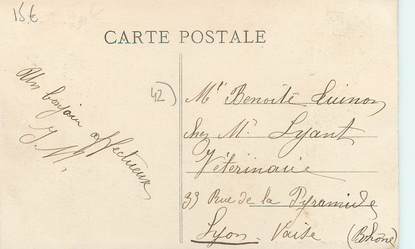 15€
CARTE POSTALE
42
Un bonjour affectueux
J. M.
Mr Benoîte
chez Mr Lyant
Vétérinaire
39 Rue de la Pyramide
Lyon Vaise (Rhône)